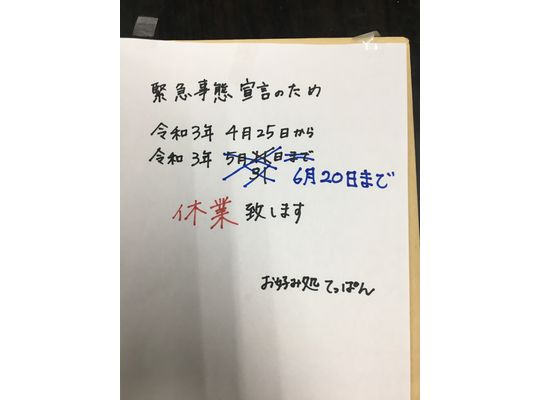 緊急事態宣言のため
令和3年 4月25日から
令和3年 5月11日まで
31
6月20日まで
休業致します
お好み処 てっぱん